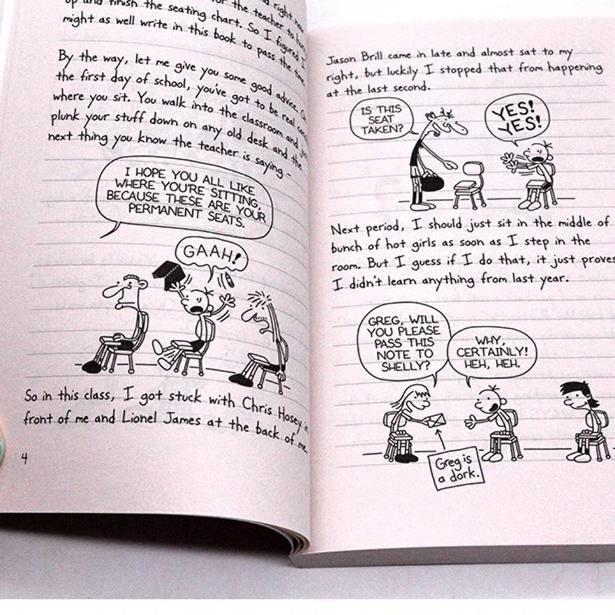 up and finish the seating chart. So I figured I
might as well write in this book to pass the time
By the way, let me give you some good advice.
the first day of school, you've got to be real
where you sit. You walk into the classroom and
plunk your stuff down on any old desk and the
next thing you know the teacher is saying -
I HOPE YOU ALL LIKE
WHERE YOU'RE SITTING,
BECAUSE THESE ARE YOUR
PERMANENT SEATS.
GAAH!
So in this class, I got stuck with Chris Hosey in
front of me and Lionel James at the back of me
4
Jason Brill came in late and almost sat to my
right, but luckily I stopped that from happening
at the last second.
IS THIS
SEAT
TAKEN?
YES!
YES!
Next period, I should just sit in the middle of
bunch of hot girls as soon as I step in the
room. But I guess if I do that, it just proves
I didn't learn anything from last year.
GREG, WILL
YOU PLEASE
PASS THIS
NOTE TO
SHELLY?
WHY,
CERTAINLY!
HEH, HEH.
Greg is
a dork.